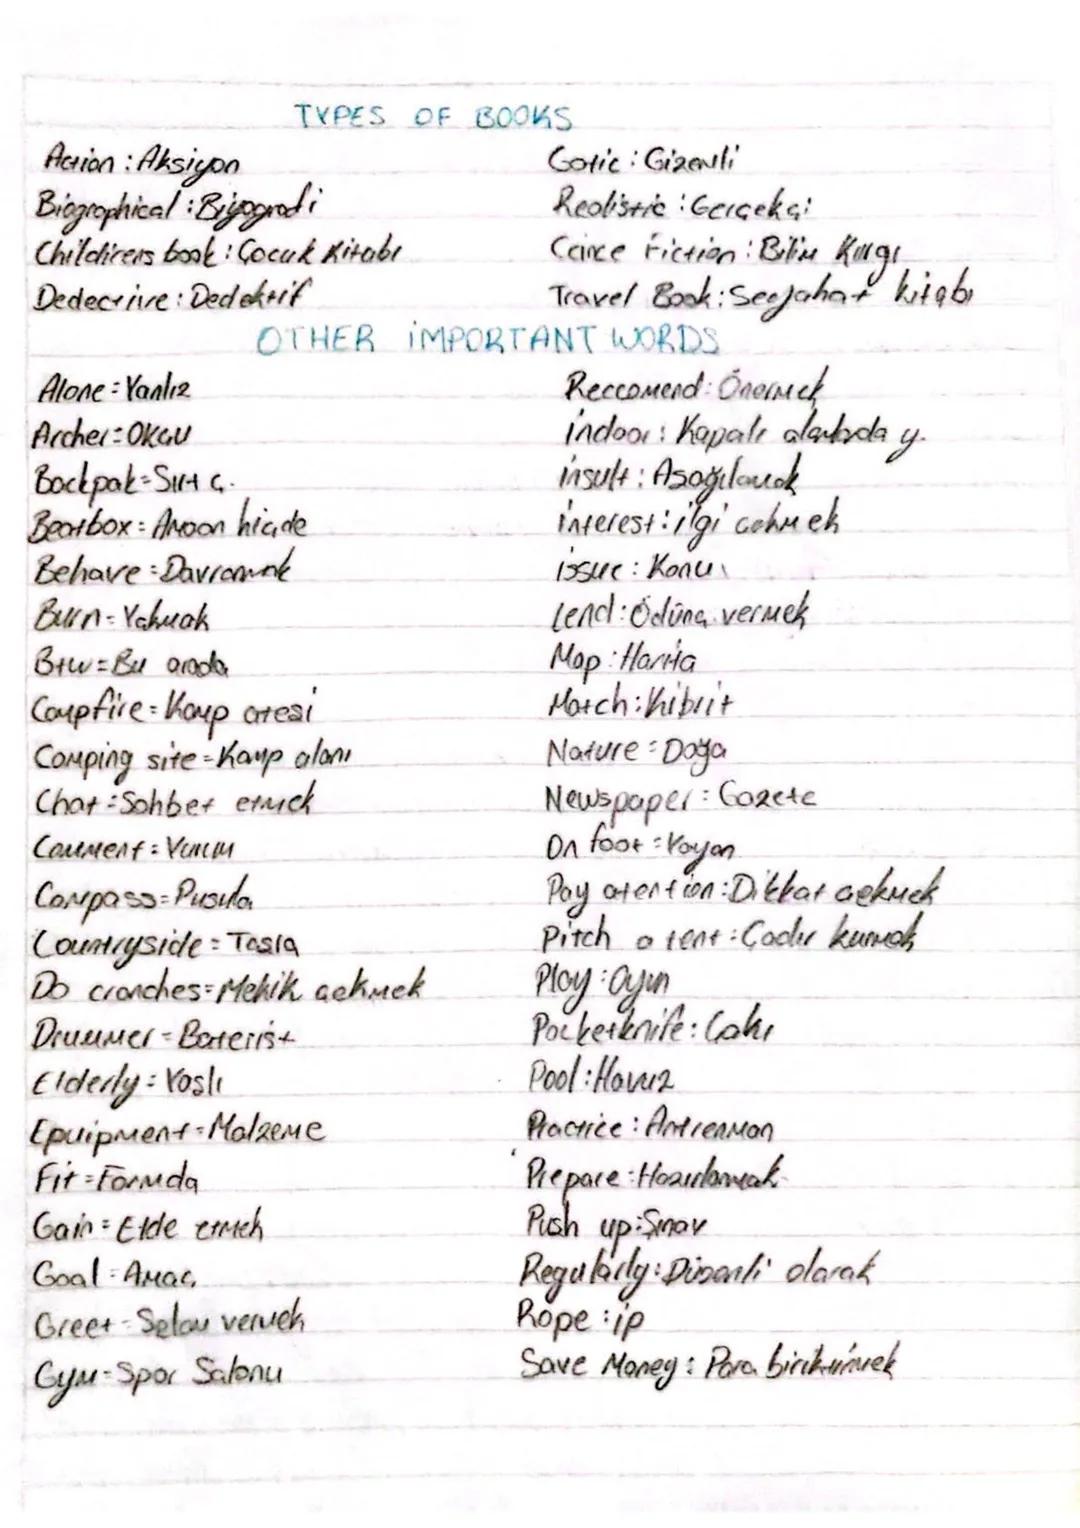 TYPES OF BOOKS
Action : Aksiyon
Biographical : Biyografi
Childirens book : Çocuk Kitabı
Dedective : Dedektif
Gotic : Gizemli
Realistic : Gerçekçi
Ceince Fiction : Bilim Kurgı
Travel Book : Seejahat kitabı
OTHER İMPORTANT WORDS
Alone = Yanlız
Archer = OKÇU
Backpak = Sırt ç.
Beatbox =
Behave = Davranmak
Burn = Yakmak
Btw = Bu arada
Campfire = Kamp ateşi
Camping site = Kamp alanı
Chat = Sohbet etmek
Comment = Yorum
Compass = Pusula
Countryside = Taşra
Do cranches = Mekik çekmek
Drummer = Baterist
Elderly = Yaşlı
Equipment = Malzeme
Fit = Formda
Gain = Elde etmek
Goal = Amaç
Greet = Selam vermek
Gym = Spor Salonu
Reccomend : Önermek
indoor : Kapalı alanlarda y.
insult : Aşağılamak
interest : ilgi çekmek
issue : Konu
Lend : Ödünç vermek
Map : Harita
Match : Kibrit
Nature = Doğa
Newspaper : Gazete
On foot = Yayan
Pay atention : Dikkat çekmek
Pitch a tent : Çadır kurmak
Play : Oyun
Pocketknife : Çakı
Pool : Havuz
Practice : Antrenman
Prepare : Hazırlamak
Push up : Şınav
Regularly : Düzenli olarak
Rope : ip
Save Money : Para biriktirmek